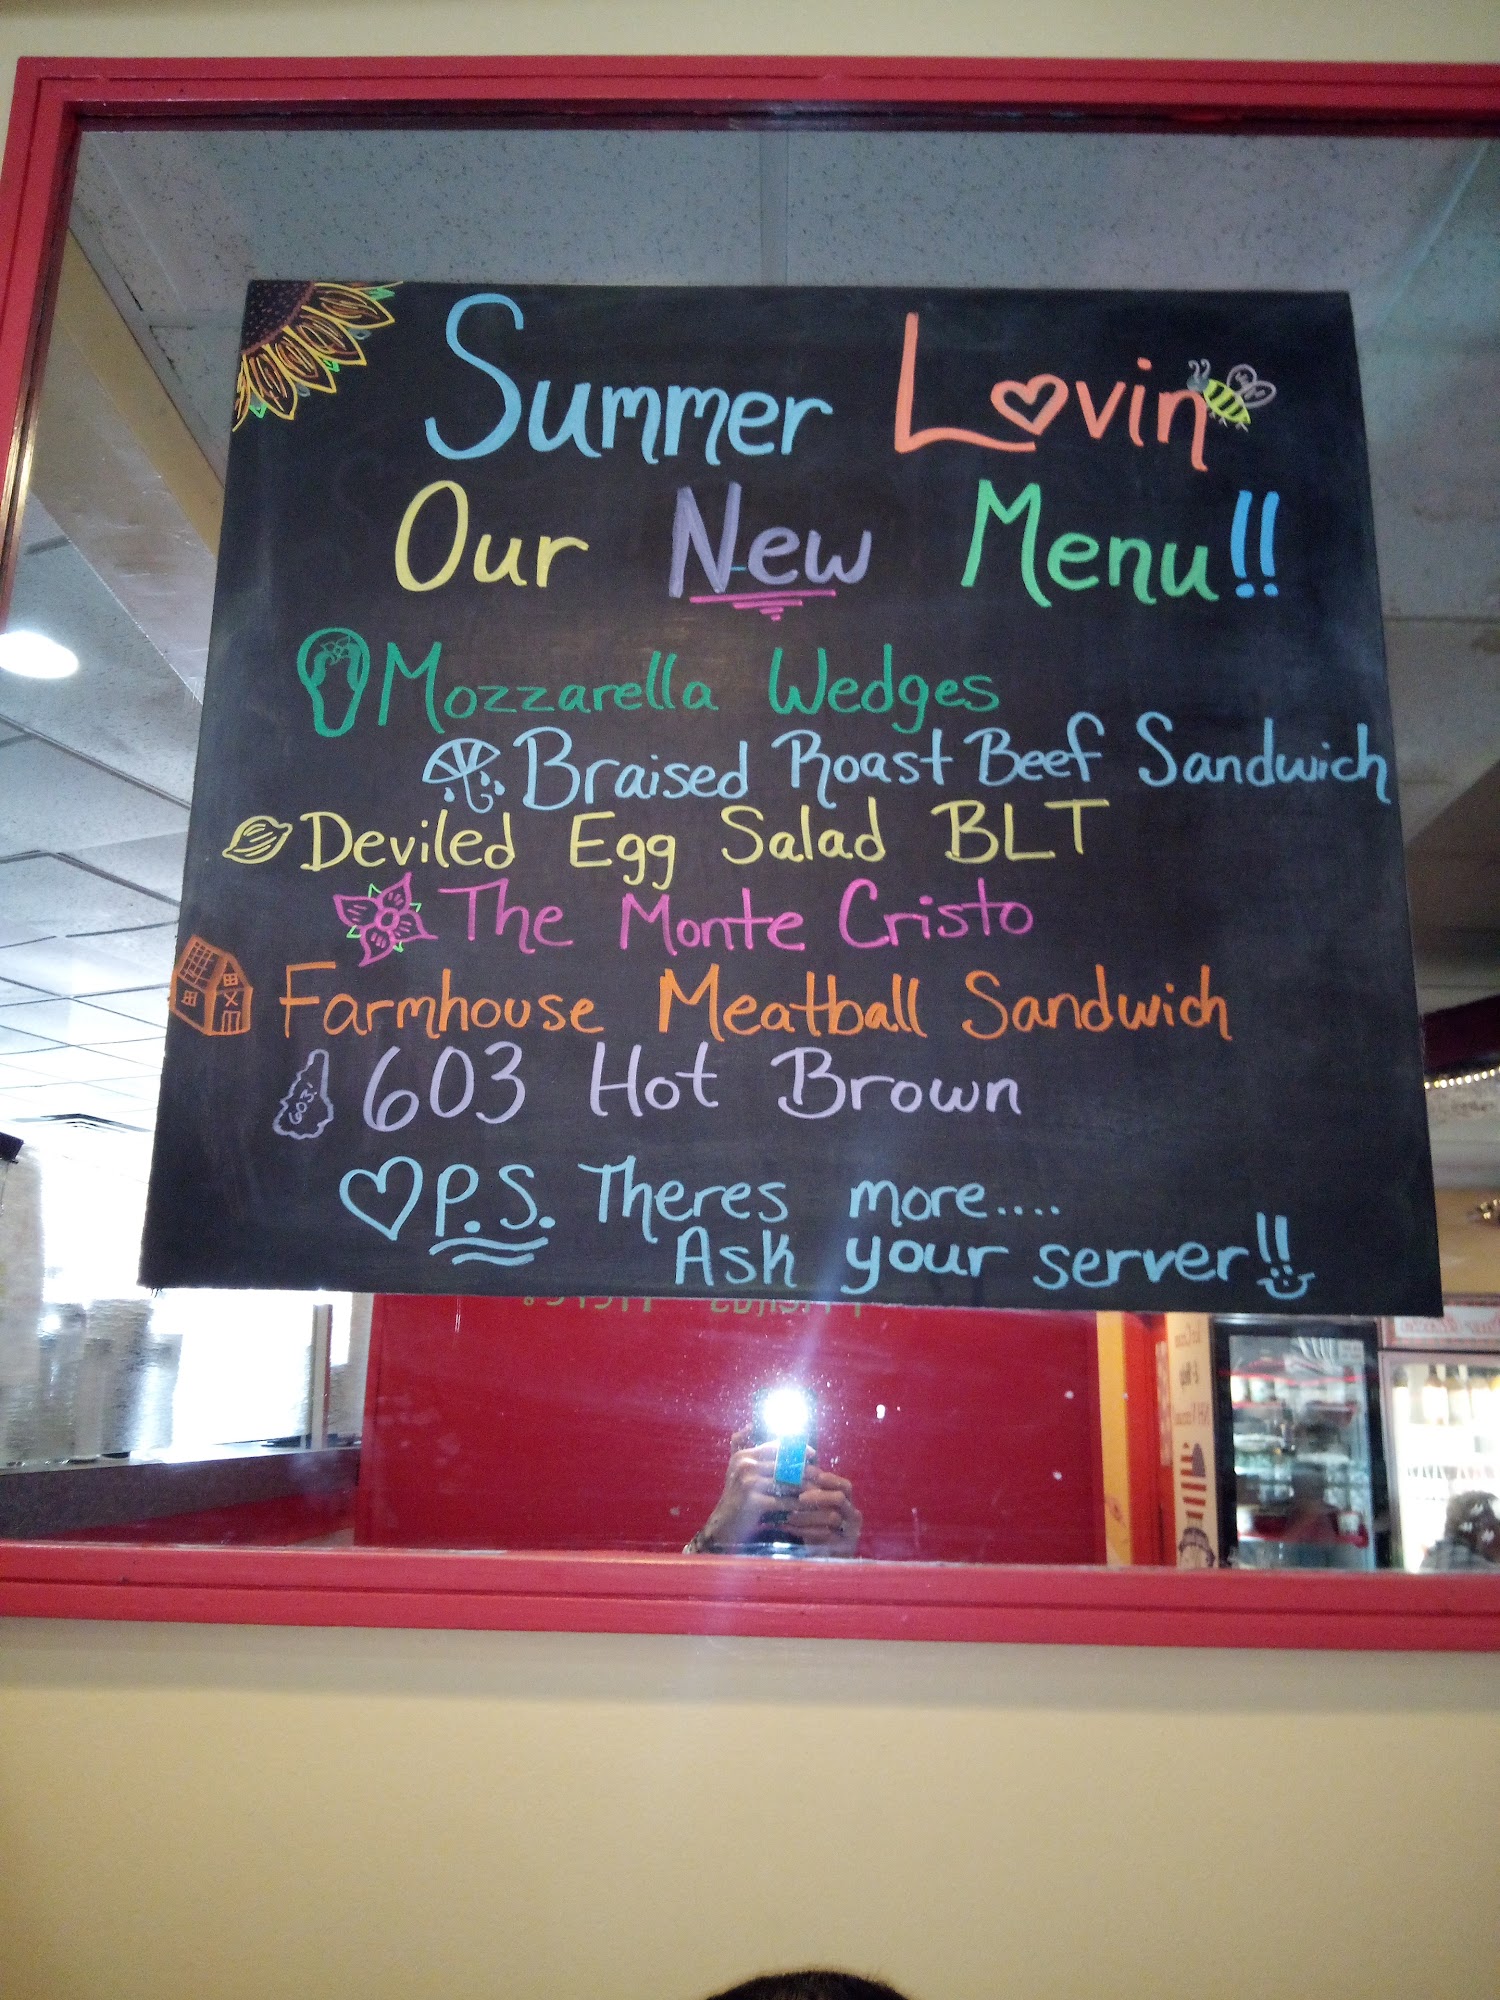 Summer Lovin
Our New Menu!!
Mozzarella Wedges
Braised Roast Beef Sandwich
Deviled Egg Salad BLT
The Monte Cristo
Farmhouse Meatball Sandwich
603 603 Hot Brown
P.S. Theres more....
Ask your server!!